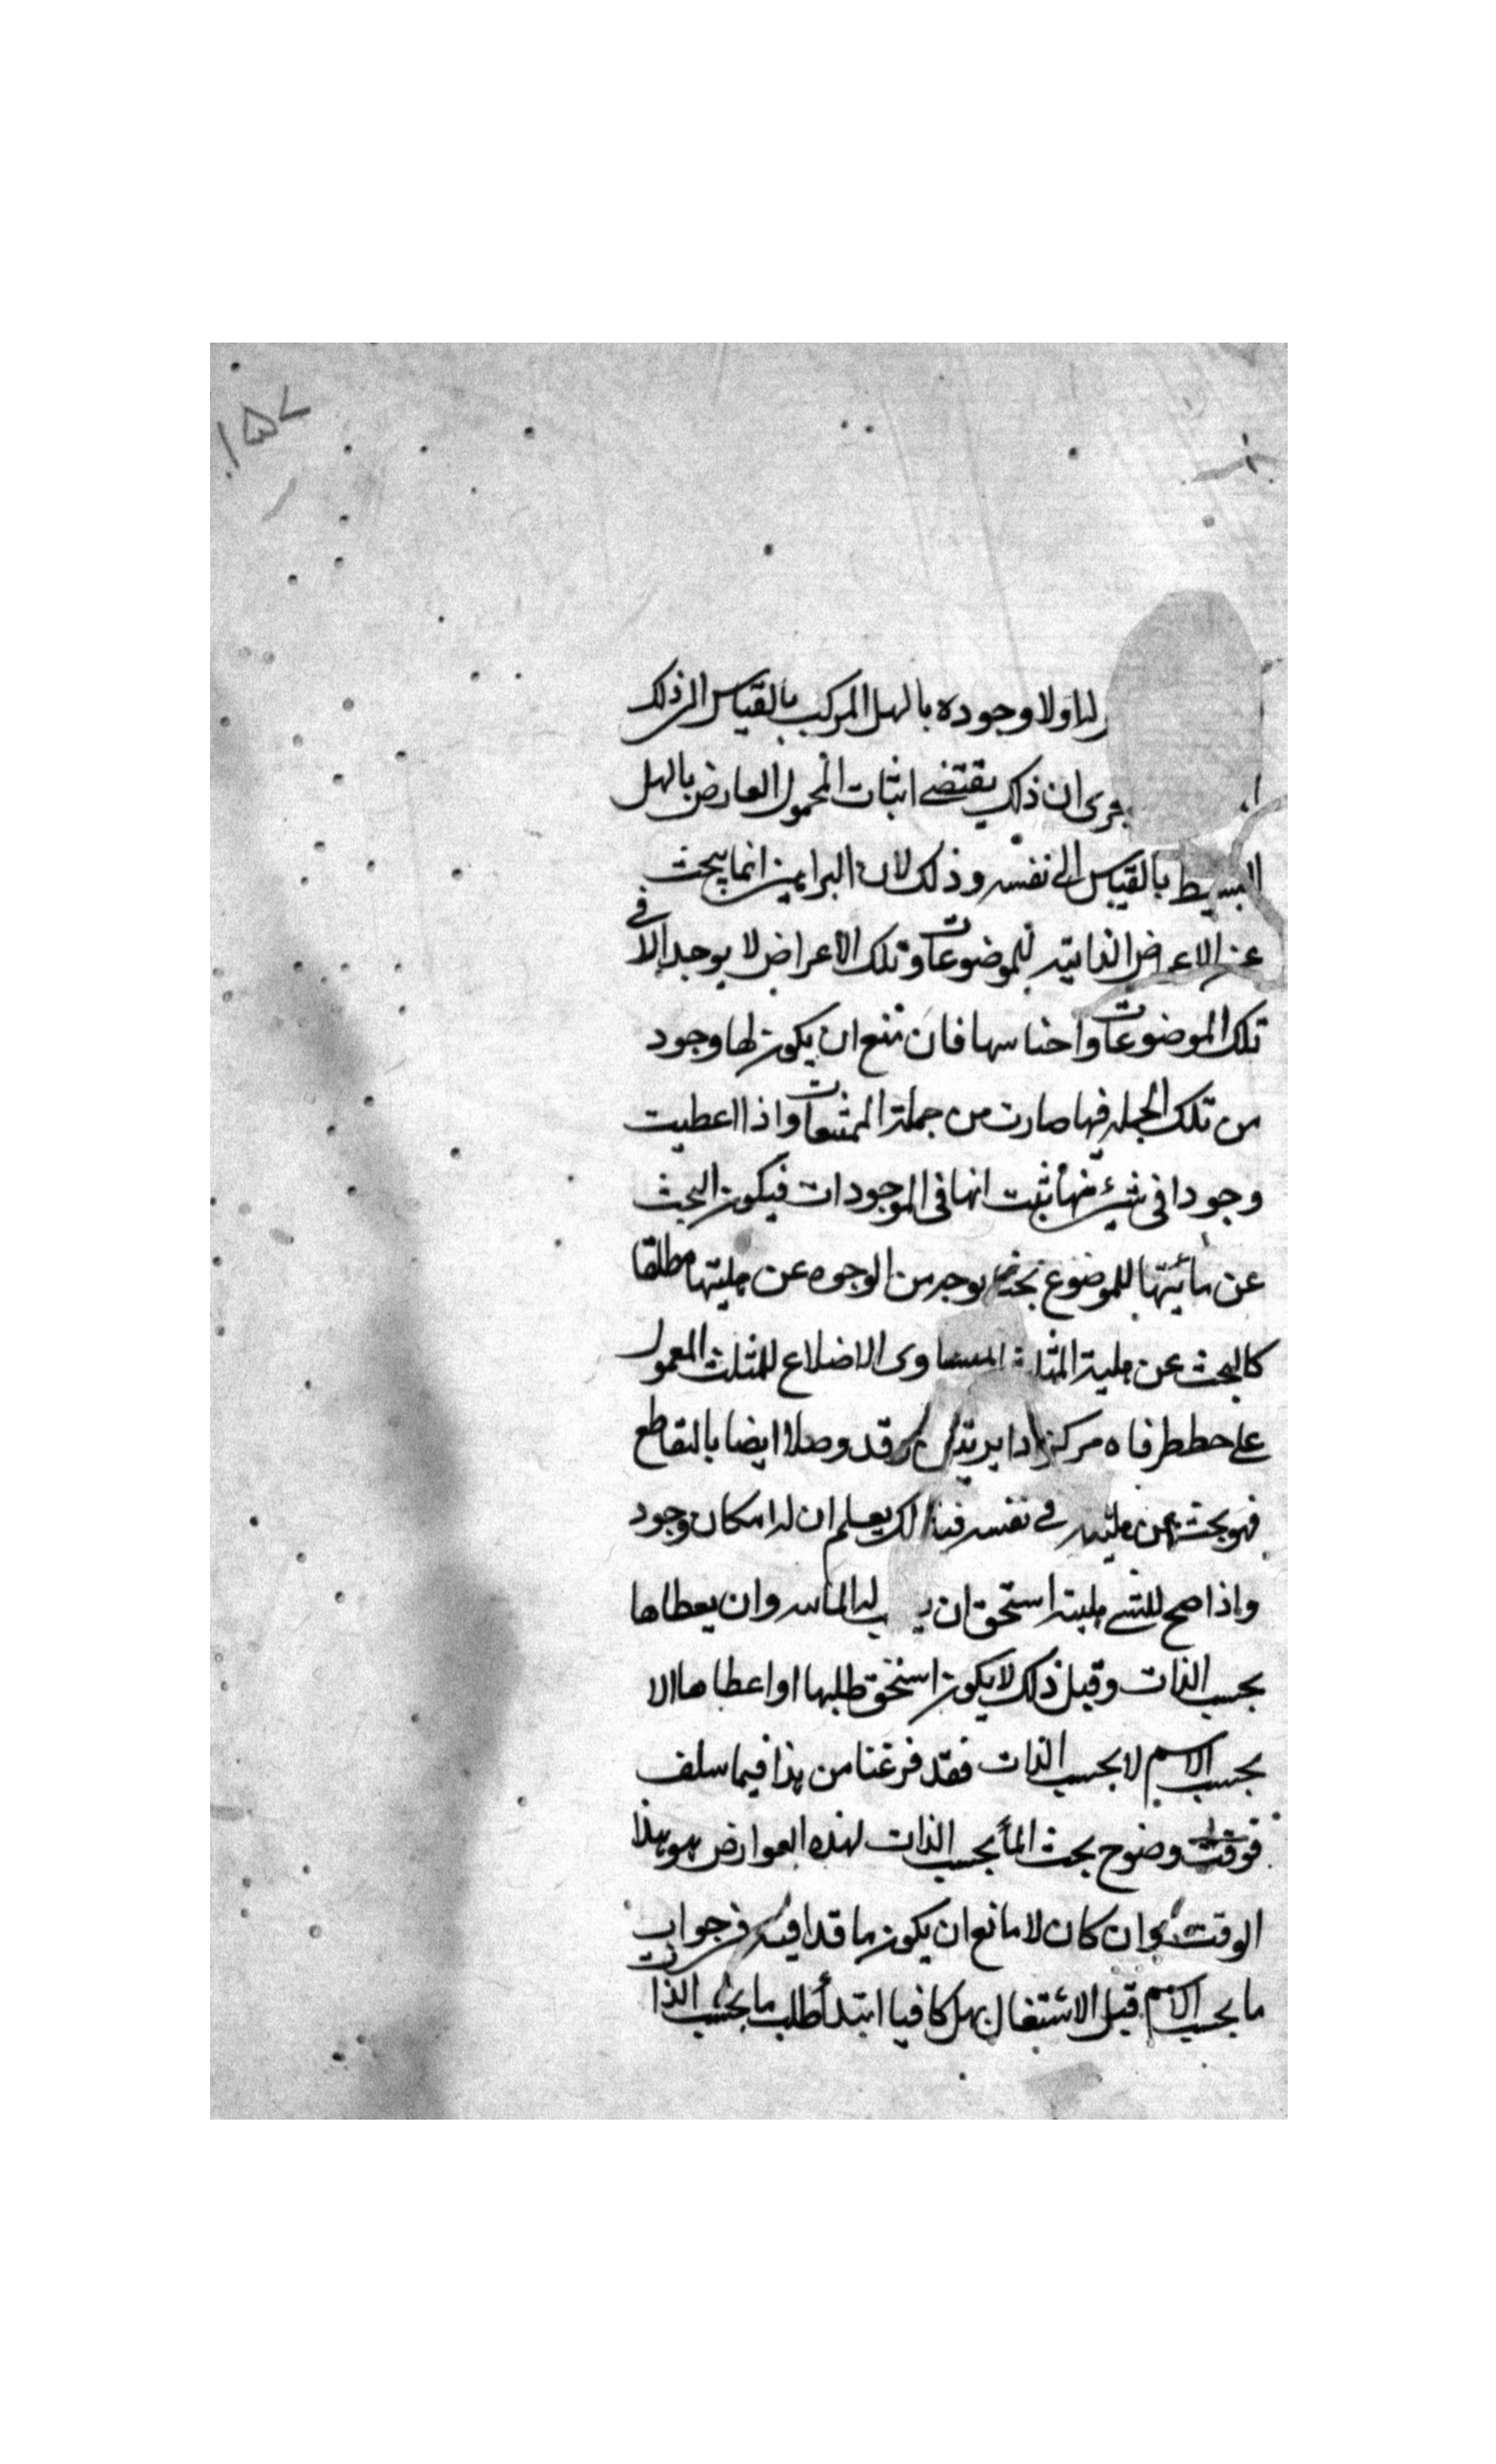 ١٥٧
له اولا وجوده بالهل المركب بالقياس الى ذلك
ان ذلك يقتضى اثبات المحمول العارض بالهل
البسيط بالقياس الى نفسه وذلك لان البراهين انما يبحث
عن الاعراض الذاتية للموضوعات وتلك الاعراض لا يوجد الا فى
تلك الموضوعات واجناسها فان منع ان يكون لها وجود
من تلك الجمله فيها صارت من جملة الممتنعات واذا اعطيت
وجودا فى شىء منها ثبت انها فى الموجودات فيكون البحث
عن للموضوع بوجه من الوجوه عن هليتها مطلقا
كالبحث عن هلية المثلث المتساوى الاضلاع للمثلث المعمول
على خط طرفاه مركزا دايرتين قد وصلا ايضا بالتقاطع
فهو بحث عن هليته فى نفسه يعلم ان له امكان وجود
واذا صح للشىء هلية استحق ان له الماييه وان يعطاها
بحسب الذات وقبل ذلك لا يكون استحق طلبها او اعطاها الا
بحسب الاسم لا بحسب الذات فقد فرغنا من هذا فيما سلف
فوقت وضوح بحث الما بحسب الذات لهذه العوارض هو هذا
الوقت وان كان لا مانع ان يكون ما قد افيد فى جواب
ما بحسب الاسم قبل الاشتغال بهل كافيا ابتدأ طلب ما بحسب الذات